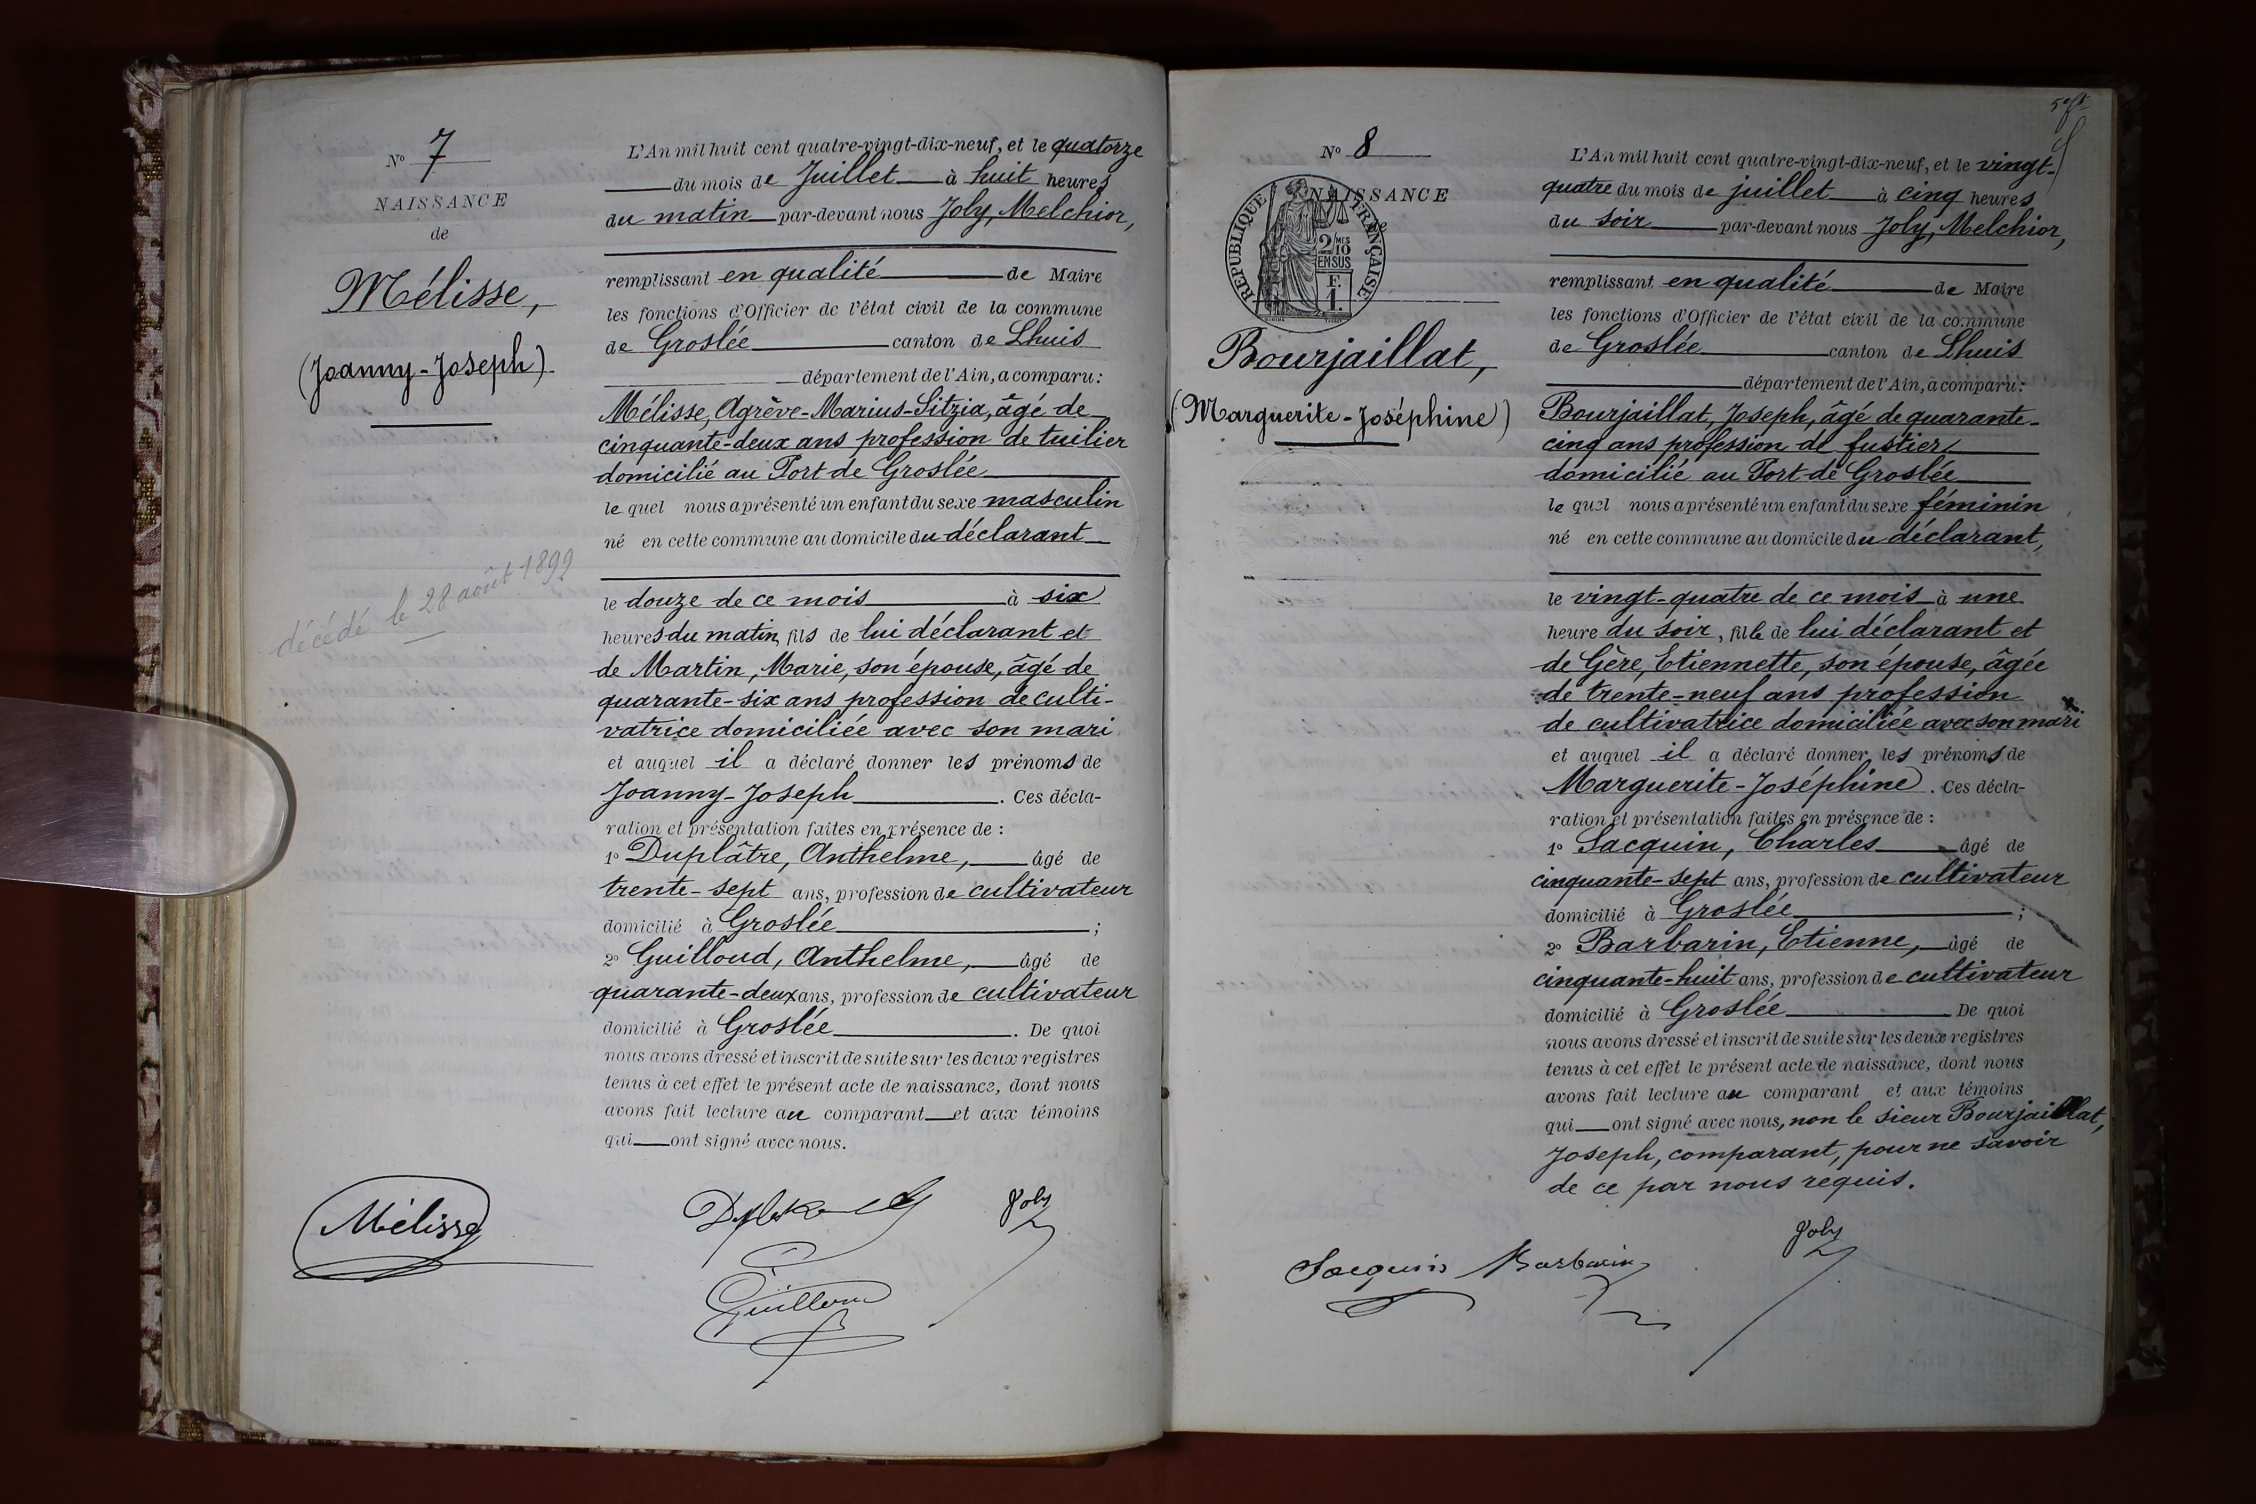 No 7
NAISSANCE
de
Mélisse,
(Joanny-Joseph)
décédé le 28 août 1899
L'An mil huit cent quatre-vingt-dix-neuf, et le quatorze
du mois de Juillet à huit heures
du matin par-devant nous Joly, Melchior,
remplissant en qualité de Maire
les fonctions d'Officier de l'état civil de la commune
de Groslée canton de Lhuis
département de l'Ain, a comparu:
Mélisse, Agrève-Marius-Sitzia, âgé de
cinquante-deux ans profession de tuilier
domicilié au Port de Groslée
lequel nous a présenté un enfant du sexe masculin
né en cette commune au domicile du déclarant
le douze de ce mois à six
heures du matin, fils de lui déclarant et
de Martin, Marie, son épouse, âgé de
quarante-six ans profession de culti-
vatrice domiciliée avec son mari
et auquel il a déclaré donner les prénoms de
Joanny-Joseph. Ces décla-
ration et présentation faites en présence de :
1o Duplâtre, Anthelme, âgé de
trente-sept ans, profession de cultivateur
domicilié à Groslée ;
2o Guilloud, Anthelme, âgé de
quarante-deux ans, profession de cultivateur
domicilié à Groslée. De quoi
nous avons dressé et inscrit de suite sur les deux registres
tenus à cet effet le présent acte de naissance, dont nous
avons fait lecture au comparant et aux témoins
qui ont signé avec nous.
Mélisse Joly
Guilloud
No 8
NAISSANCE
RÉPUBLIQUE FRANÇAISE
2/10 MES
EN SUS
F.
1.
Bourjaillat,
(Marguerite-Joséphine)
L'An mil huit cent quatre-vingt-dix-neuf, et le vingt-
quatre du mois de juillet à cinq heures
du soir par-devant nous Joly, Melchior,
remplissant en qualité de Maire
les fonctions d'Officier de l'état civil de la commune
de Groslée canton de Lhuis
département de l'Ain, a comparu:
Bourjaillat, Joseph, âgé de quarante-
cinq ans profession de fustier
domicilié au Port de Groslée
lequel nous a présenté un enfant du sexe féminin
né en cette commune au domicile du déclarant,
le vingt-quatre de ce mois à une
heure du soir, fille de lui déclarant et
de Gère, Etiennette, son épouse, âgée
de trente-neuf ans profession
de cultivatrice domiciliée avec son mari
et auquel il a déclaré donner les prénoms de
Marguerite-Joséphine. Ces décla-
ration et présentation faites en présence de :
1o Sacquin, Charles âgé de
cinquante-sept ans, profession de cultivateur
domicilié à Groslée ;
2o Barbarin, Etienne, âgé de
cinquante-huit ans, profession de cultivateur
domicilié à Groslée De quoi
nous avons dressé et inscrit de suite sur les deux registres
tenus à cet effet le présent acte de naissance, dont nous
avons fait lecture au comparant et aux témoins
qui ont signé avec nous, non le sieur Bourjaillat,
Joseph, comparant, pour ne savoir
de ce par nous requis.
Sacquin Barbarin Joly